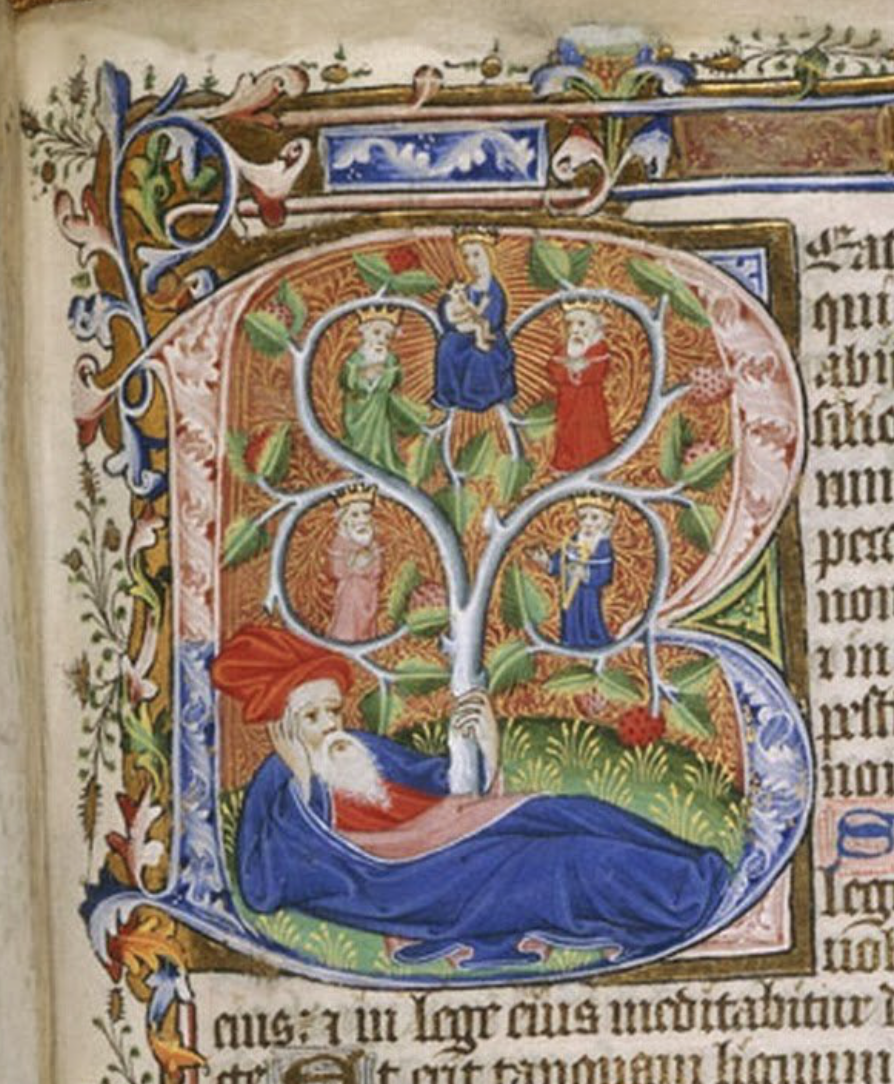 B eat
qui
abi
silio
rum
pecc
non
⁊ in
pest
non
S
lege
uol
eius: ⁊ in lege eius meditabitur
cte Et erit tanquam lignum